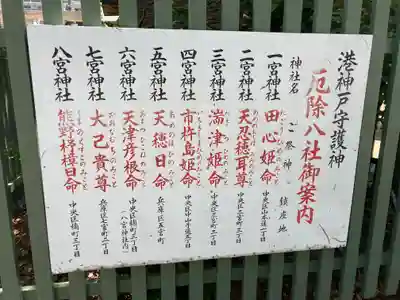 港神戸守護神
厄除八社御案内
神社名 ご祭神 鎮座地
一宮神社 田心姫命 中央区山本通一丁目
二宮神社 天忍穂耳尊 中央区二宮町三丁目
三宮神社 湍津姫命 中央区三宮町二丁目
四宮神社 市杵島姫命 中央区中山手通五丁目
五宮神社 天穂日命 兵庫区五宮町
六宮神社 天津彦根命 中央区楠町三丁目(八宮神社内)
七宮神社 大己貴尊 兵庫区七宮町二丁目
八宮神社 熊野杼樟日命 中央区楠町三丁目